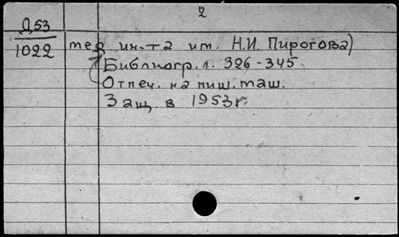 2
Д53
1022
мед. ин-та им. Н.И. Пирогова)
Библиогр. л. 326-345.
Отпеч. на пиш. маш.
Защ. в 1953г.